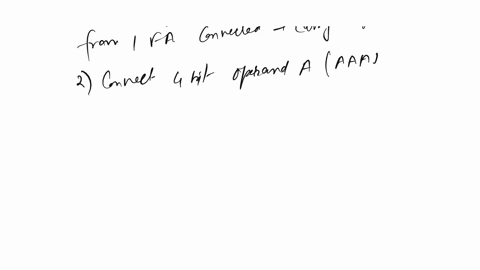 from 1 FA Connected →
2) Connect 4 bit operand A (AAA)